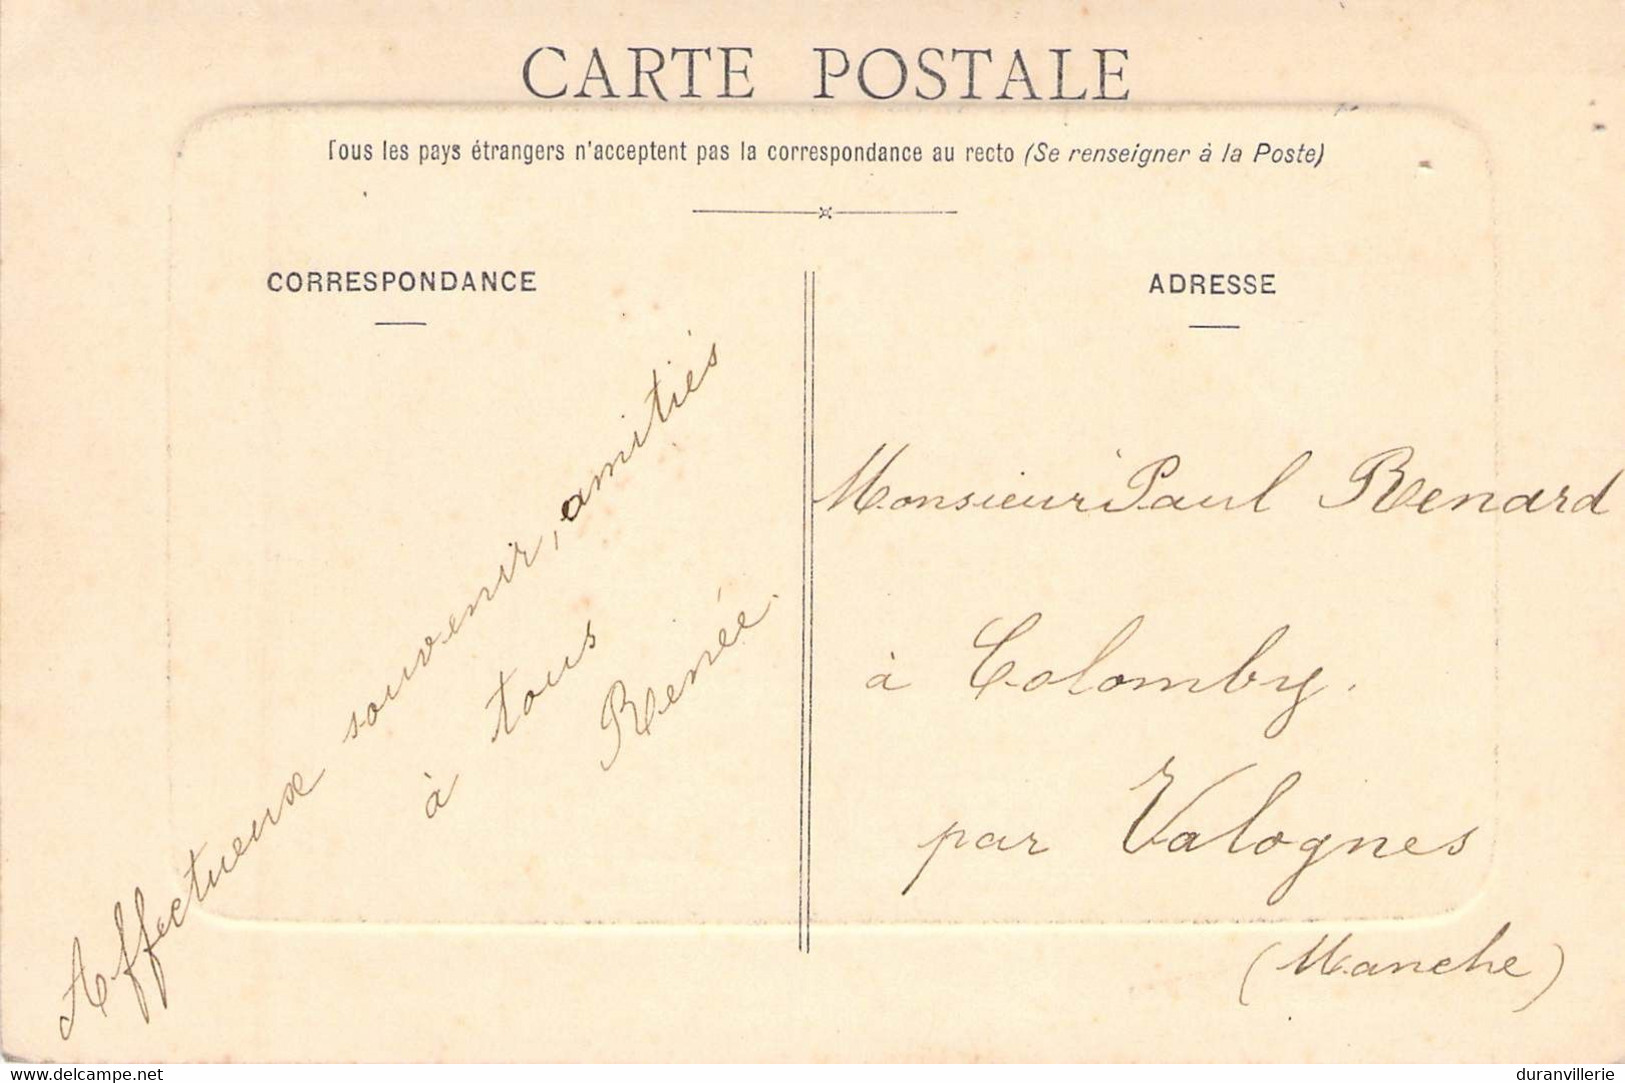 CARTE POSTALE
Tous les pays étrangers n'acceptent pas la correspondance au recto (Se renseigner à la Poste)
CORRESPONDANCE
Affectueux souvenir, amitiés
à tous
Renée.
ADRESSE
Monsieur Paul Renard
à Colomby.
par Valognes
(Manche)
www.delcampe.net
duranvillerie